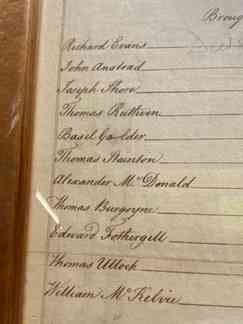 Broug
Richard Evans
John Anstead
Joseph Shore
Thomas Ruthven
Basil Golder
Thomas Stainton
Alexander McDonald
Thomas Burgoyne
Edward Fothergill
Thomas Ullock
William McKelvie